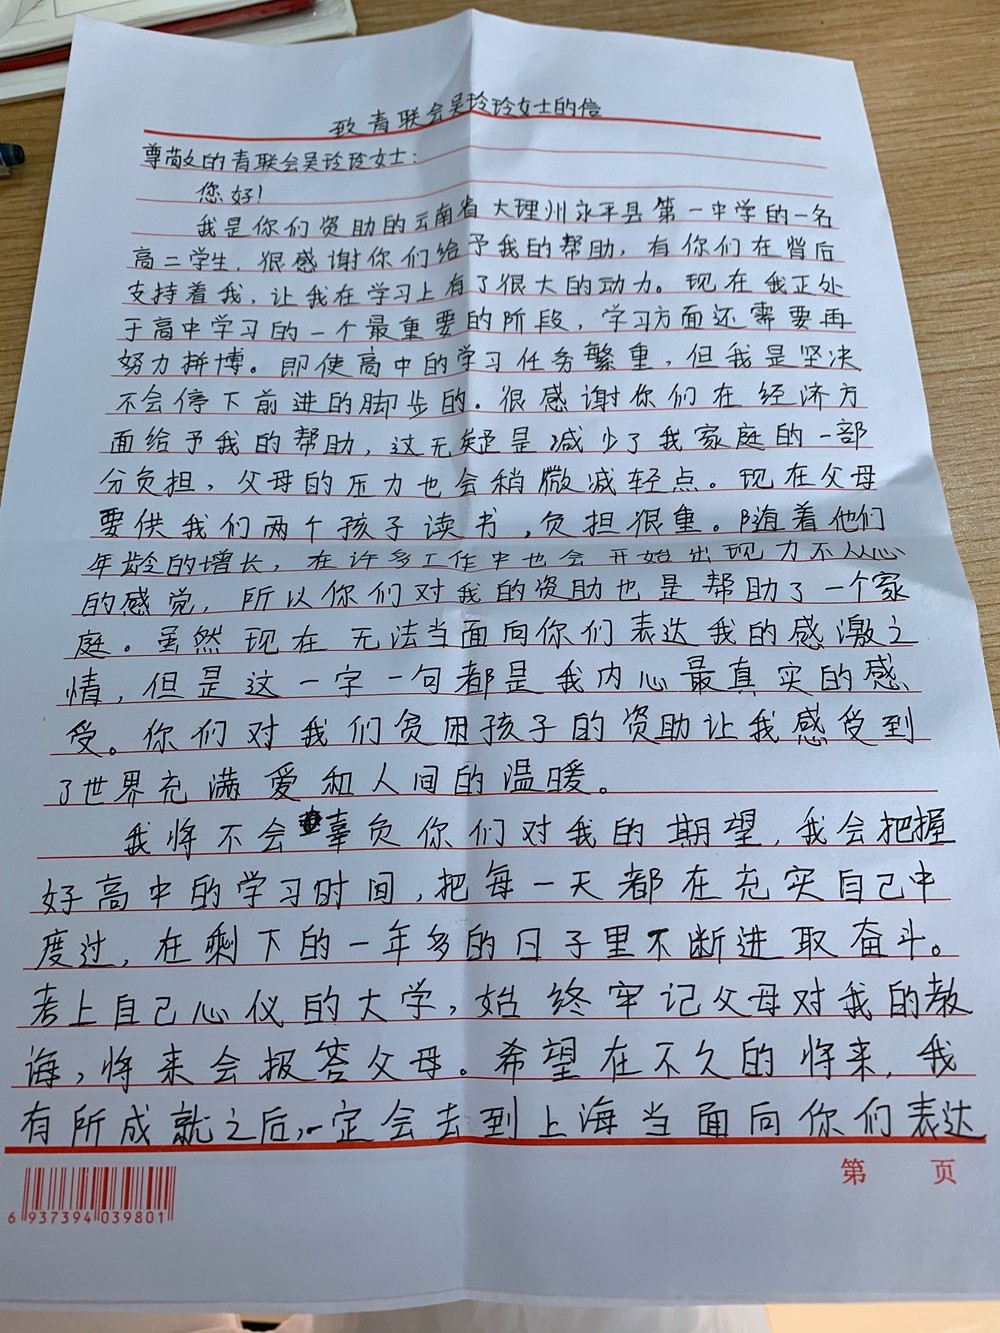 致青联会吴玲玲女士的信
尊敬的青联会吴玲玲女士:
您好!
我是你们资助的云南省大理州永平县第一中学的一名
高二学生,很感谢你们给予我的帮助,有你们在背后
支持着我,让我在学习上有了很大的动力。现在我正处
于高中学习的一个最重要的阶段,学习方面还需要再
努力拼博。即使高中的学习任务繁重,但我是坚决
不会停下前进的脚步的。很感谢你们在经济方
面给予我的帮助,这无疑是减少了我家庭的一部
分负担,父母的压力也会稍微减轻点。现在父母
要供我们两个孩子读书,负担很重。随着他们
年龄的增长,在许多工作中也会开始出现力不从心
的感觉,所以你们对我的资助也是帮助了一个家
庭。虽然现在无法当面向你们表达我的感激之
情,但是这一字一句都是我内心最真实的感
受。你们对我们贫困孩子的资助让我感受到
了世界充满爱和人间的温暖。
我将不会辜负你们对我的期望,我会把握
好高中的学习时间,把每一天都在充实自己中
度过,在剩下的一年多的日子里不断进取奋斗。
考上自己心仪的大学,始终牢记父母对我的教
诲,将来会报答父母。希望在不久的将来,我
有所成就之后,一定会去到上海当面向你们表达
第 页
6 937394 039801